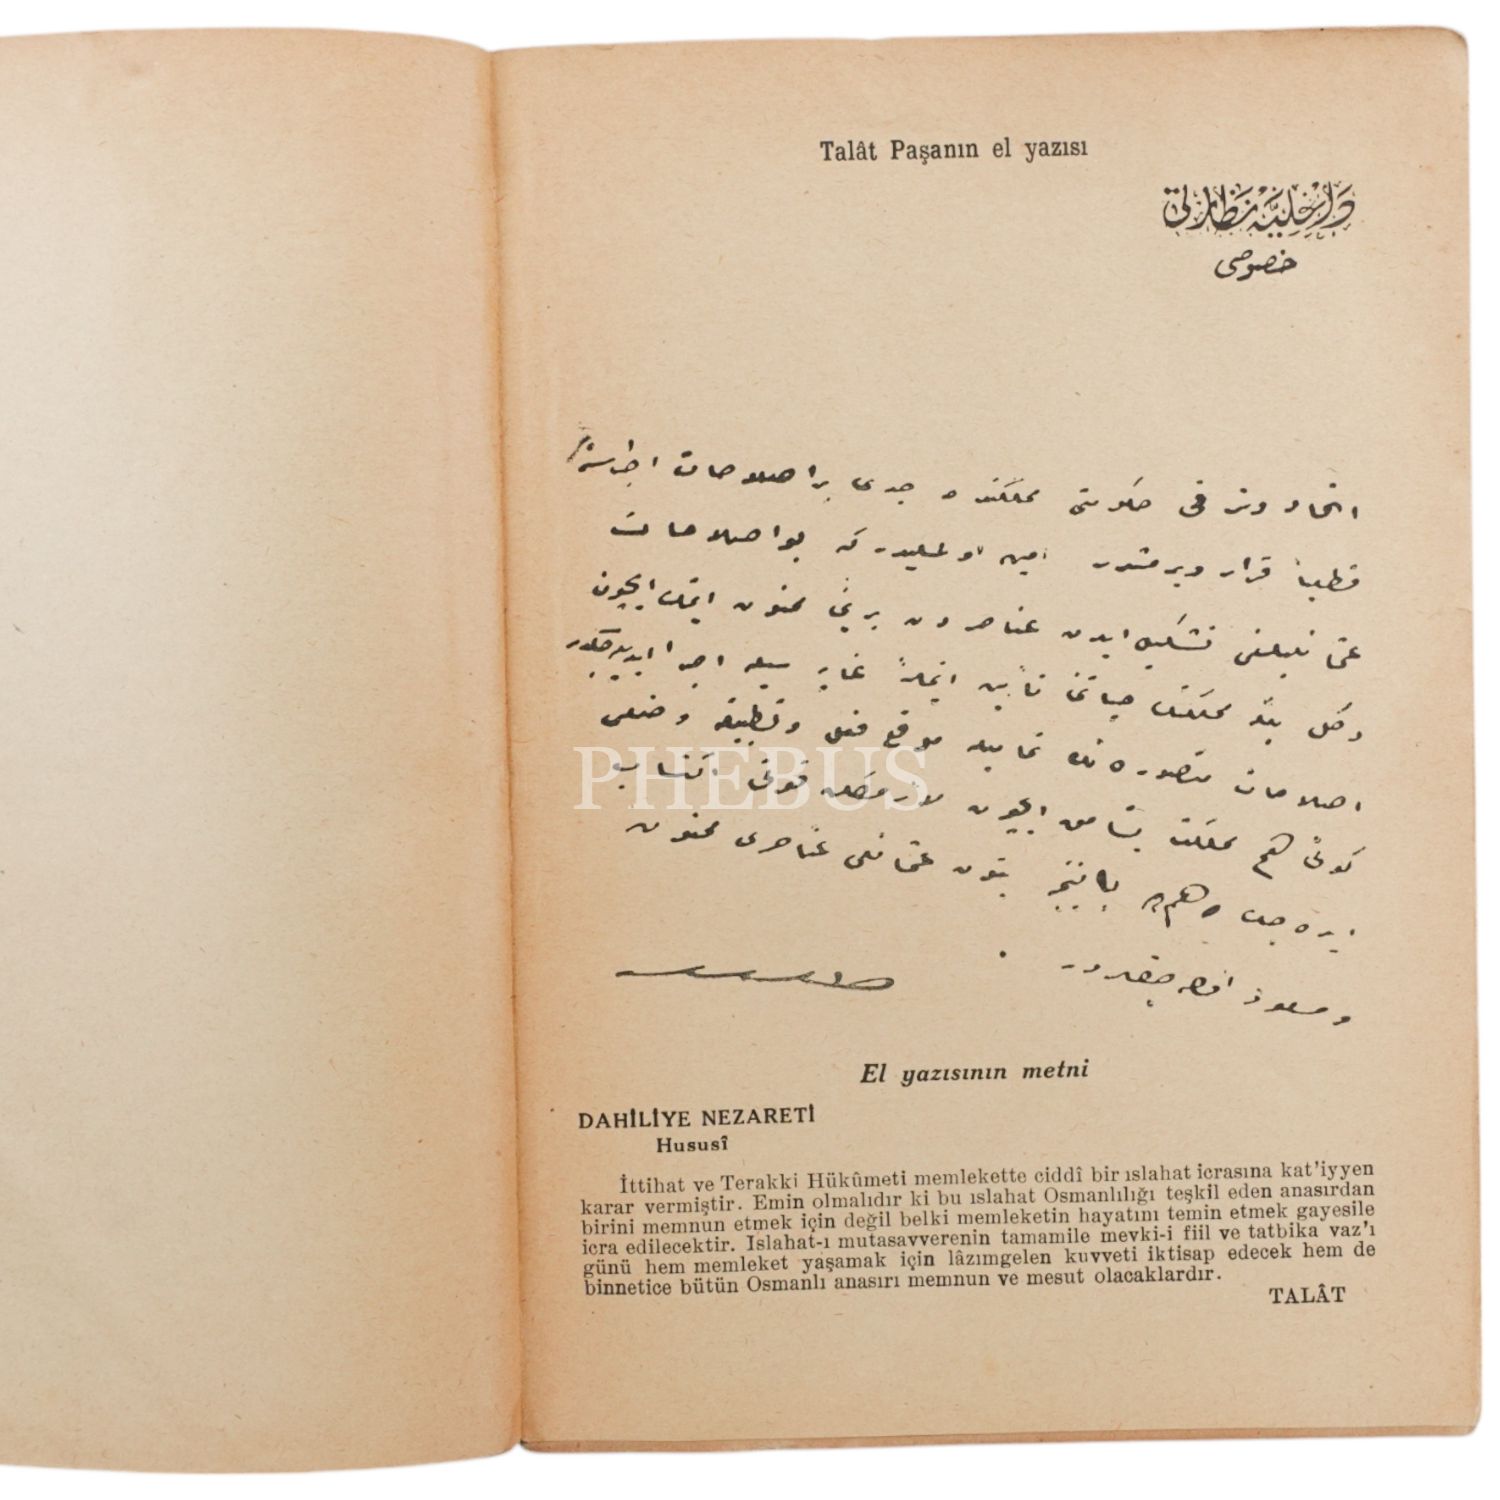 Talât Paşanın el yazısı
داخلیه نظارتی
خصوصی
اتحاد و ترقی حکومتی مملکتده جدی بر اصلاحات اجراسنه
قطعیاً قرار ویرمشدر امین اولملیدر که بو اصلاحات
عثمانلیلغی تشکیل ایدن عناصردن برینی ممنون ایتمك ایچون
دکل بلکه مملکتك حیاتنی تأمین ایتمك غایه سیله اجرا ایدیله جکدر
اصلاحات متصوره نك تمامیله موقع فعل و تطبیقه وضعی
کونی هم مملکت یشامق ایچون لازمکلن قوتی اکتساب
ایده جك هم ده بالنتیجه بتون عثمانلی عناصری ممنون
و مسعود اوله جقلردر
طلعت
PHEBUS
El yazısının metni
DAHİLİYE NEZARETİ
Hususî
İttihat ve Terakki Hükûmeti memlekette ciddî bir ıslahat icrasına kat'iyyen
karar vermiştir. Emin olmalıdır ki bu ıslahat Osmanlılığı teşkil eden anasırdan
birini memnun etmek için değil belki memleketin hayatını temin etmek gayesile
icra edilecektir. Islahat-ı mutasavverenin tamamile mevki-i fiil ve tatbika vaz'ı
günü hem memleket yaşamak için lâzımgelen kuvveti iktisap edecek hem de
binnetice bütün Osmanlı anasırı memnun ve mesut olacaklardır.
TALÂT